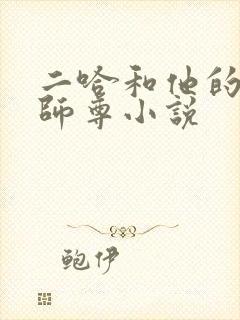 二哈和他的
師尊小説
鲍伊